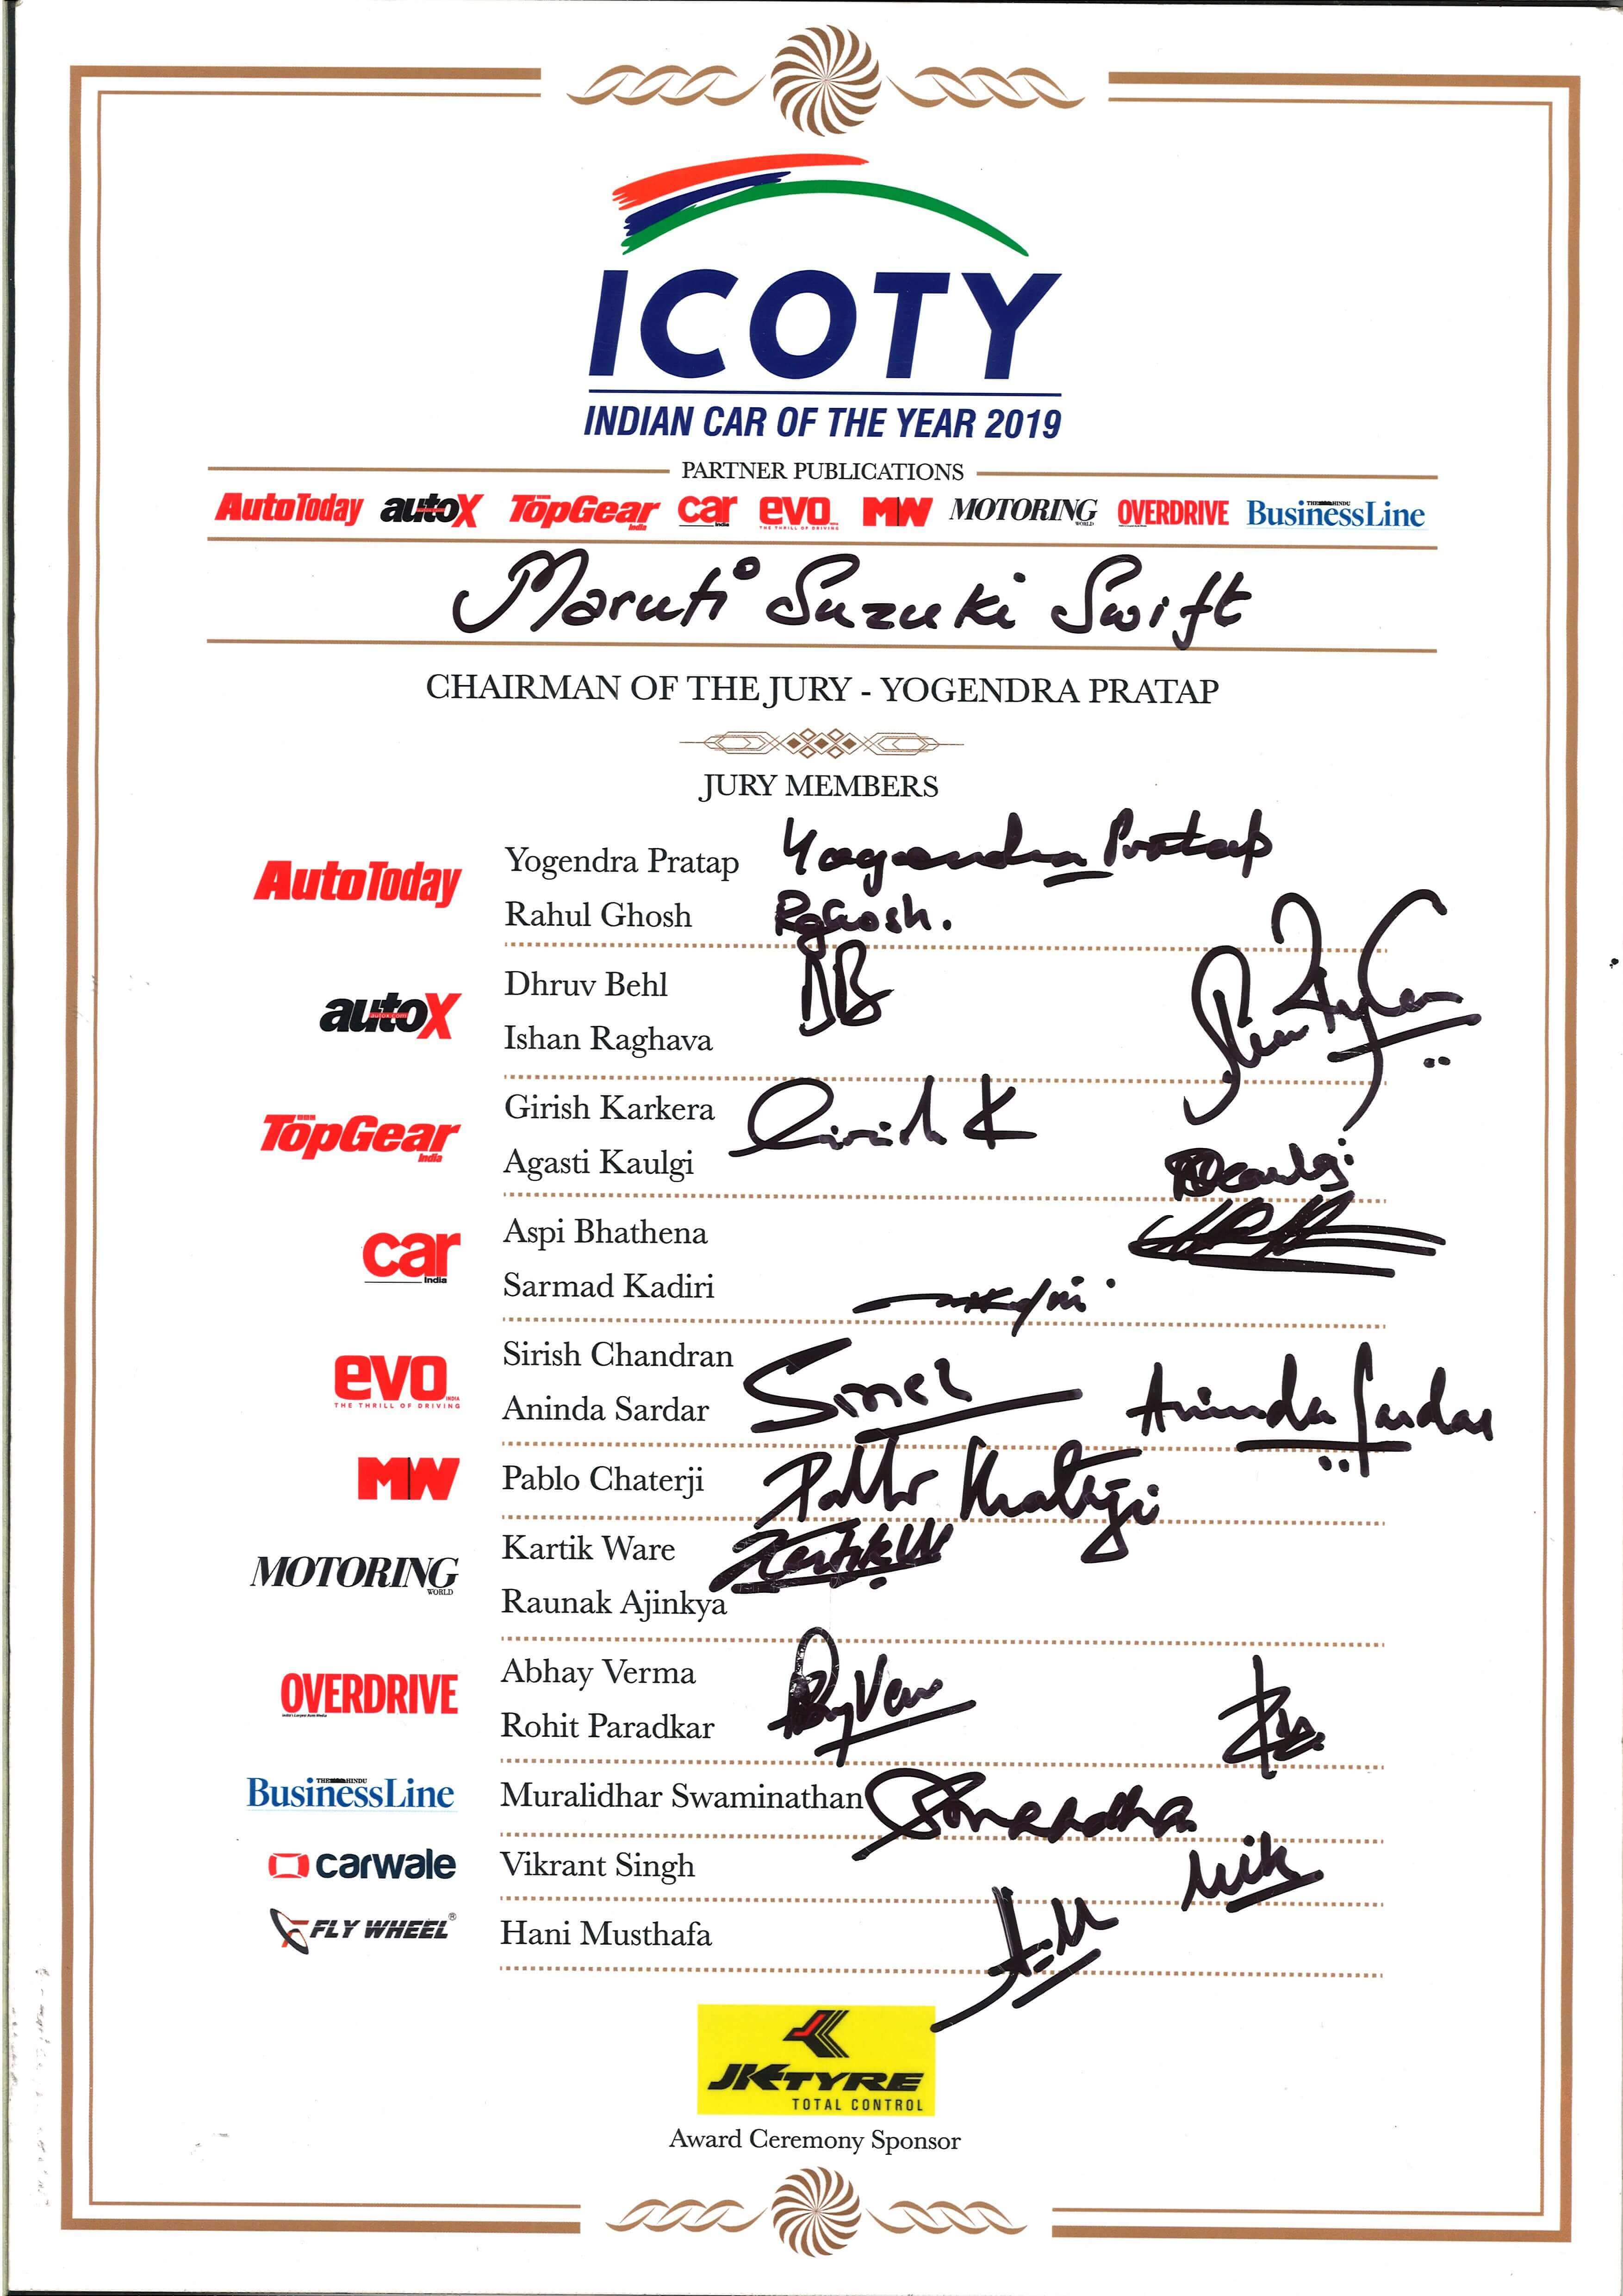 ICOTY
INDIAN CAR OF THE YEAR 2019
PARTNER PUBLICATIONS
AutoToday autoX TopGear India car India evo THE THRILL OF DRIVING MW MOTORING WORLD OVERDRIVE THE HINDU BusinessLine
Maruti Suzuki Swift
CHAIRMAN OF THE JURY - YOGENDRA PRATAP
JURY MEMBERS
AutoToday
Yogendra Pratap Yogendra Pratap
Rahul Ghosh RGhosh.
autoX
Dhruv Behl DB
Ishan Raghava
TopGear India
Girish Karkera Girish K
Agasti Kaulgi AKaulgi
car India
Aspi Bhathena
Sarmad Kadiri
evo INDIA
THE THRILL OF DRIVING
Sirish Chandran
Aninda Sardar Aninda Sardar
MW
Pablo Chaterji Pablo Chaterji
MOTORING WORLD
Kartik Ware Kartik W
Raunak Ajinkya
OVERDRIVE
Abhay Verma
Rohit Paradkar
THE HINDU
BusinessLine
Muralidhar Swaminathan
carwale
Vikrant Singh
FLY WHEEL®
Hani Musthafa
JK TYRE
TOTAL CONTROL
Award Ceremony Sponsor